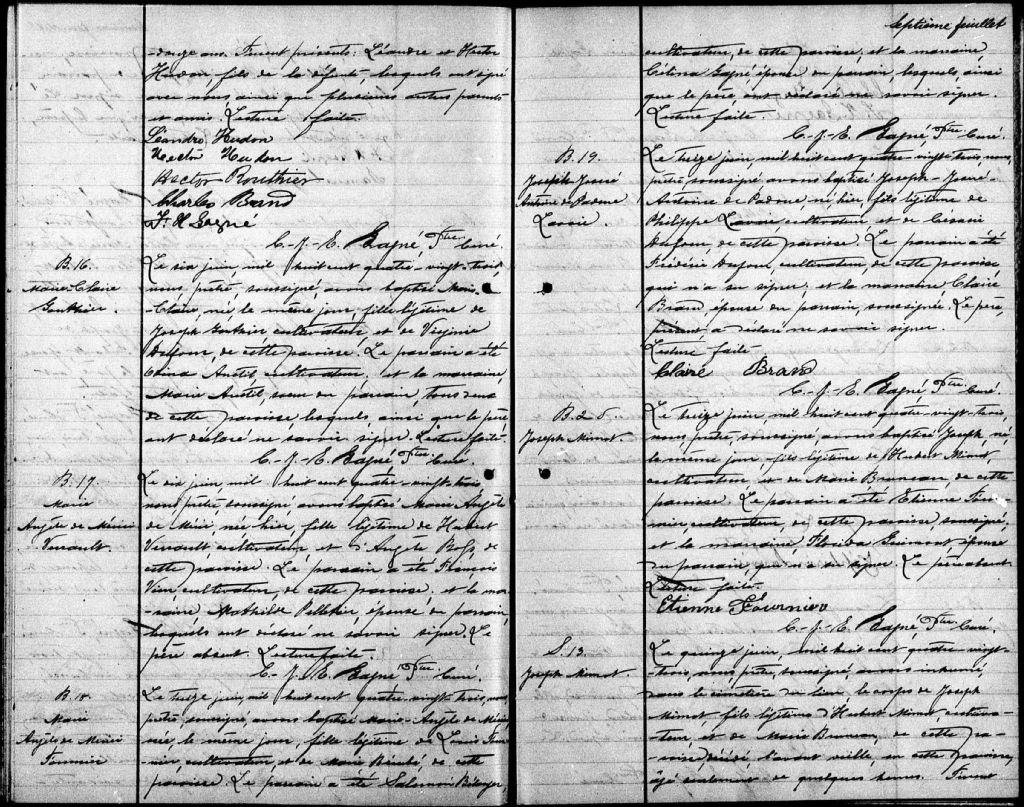 -douze ans. Furent présents: Léandre et Hector
Hudon, fils de la défunte, lesquels ont signé
avec nous ainsi que plusieurs autres parents
et amis. Lecture faite.
Léandre Hudon
Hector Hudon
Hector Routhier
Charles Brand
C.-J.-E. Gagné, Ptre Curé.
B. 16.
Marie-Claire
Gauthier.
Le six juin, mil huit cent quatre-vingt-trois,
nous prêtre, soussigné, avons baptisé Marie-
-Claire, née le même jour, fille légitime de
Joseph Gauthier cultivateur, et de Virginie
Dufour, de cette paroisse. Le parrain a été
Autil cultivateur, et la marraine,
Marie Autil, soeur du parrain, tous deux
de cette paroisse, lesquels, ainsi que le père
ont déclaré ne savoir signer. Lecture faite.
C.-J.-E. Gagné Ptre Curé.
B. 17.
Marie
Angèle de Mérici
Verrault.
Le six juin, mil huit cent quatre-vingt-trois
nous prêtre, soussigné, avons baptisé Marie Angèle
de Mérici, née hier, fille légitime de Hubert
Verrault, cultivateur, et d'Angèle Ross, de
cette paroisse. Le parrain a été François
Vien cultivateur, de cette paroisse, et la mar-
-raine Mathilde Pelletier, épouse du parrain,
lesquels ont déclaré ne savoir signer. Le
père absent. Lecture faite.
C.-J.-E. Gagné Ptre Curé.
B. 18.
Marie
Angèle de Mérici
Fournier
Le treize juin, mil huit cent quatre-vingt-trois, nous
prêtre, soussigné, avons baptisé Marie-Angèle de Mérici,
née, le même jour, fille légitime de Louis Four-
-nier, cultivateur, et de Marie, de cette
paroisse. Le parrain a été Salomon Bélanger
Septième feuillet
cultivateur, de cette paroisse, et la marraine,
Célina Gagné épouse du parrain, lesquels, ainsi
que le père ont déclaré ne savoir signer.
Lecture faite.
C.-J.-E. Gagné, Ptre Curé.
B. 19.
Joseph Josué
Antoine de Padoue
Lavoie.
Le treize juin, mil huit cent quatre-vingt-trois, nous,
prêtre, soussigné avons baptisé Joseph-Josué-
Antoine de Padoue né hier, fils légitime de
Philippe Lavoie, cultivateur, et de Césarie
Dufour, de cette paroisse. Le parrain a été
Frédéric Dufour, cultivateur, de cette paroisse
qui n'a su signer, et la marraine Claire
Brand, épouse du parrain, soussignée. Le père,
présent, a déclaré ne savoir signer.
Lecture faite.
Claire Brand
C.-J.-E. Gagné, Ptre Curé.
B. 20.
Joseph Mimot.
Le treize juin mil huit cent quatre-vingt-trois,
nous prêtre, soussigné avons baptisé Joseph né
le même jour, fils légitime de Hubert Mimot
cultivateur, et de Marie Bruneau, de cette
paroisse. Le parrain a été Etienne Four-
-nier, cultivateur, de cette paroisse soussigné,
et la marraine, Guimont épouse
du parrain, qui n'a su signer. Le père absent.
Lecture faite.
Etienne Fournier
C.-J.-E. Gagné, Ptre Curé.
S. 13.
Joseph Mimot.
Le quinze juin, mil huit cent quatre-vingt-
-trois, nous prêtre, soussigné, avons inhumé,
dans le cimetière du lieu, le corps de Joseph
Mimot fils légitime d'Hubert Mimot, cultiva-
-teur et de Marie Bruneau, de cette pa-
-roisse, décédé l'avant veille, en cette paroisse,
âgé seulement de quelques heures. Furent